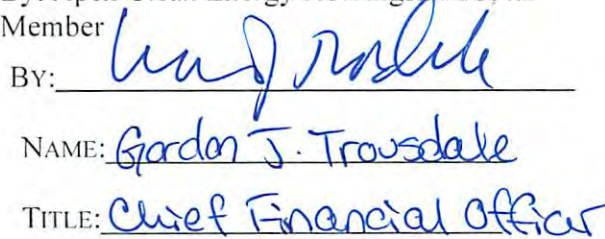 Member
BY:
NAME: Gordon J. Trousdale
TITLE: Chief Financial Officer